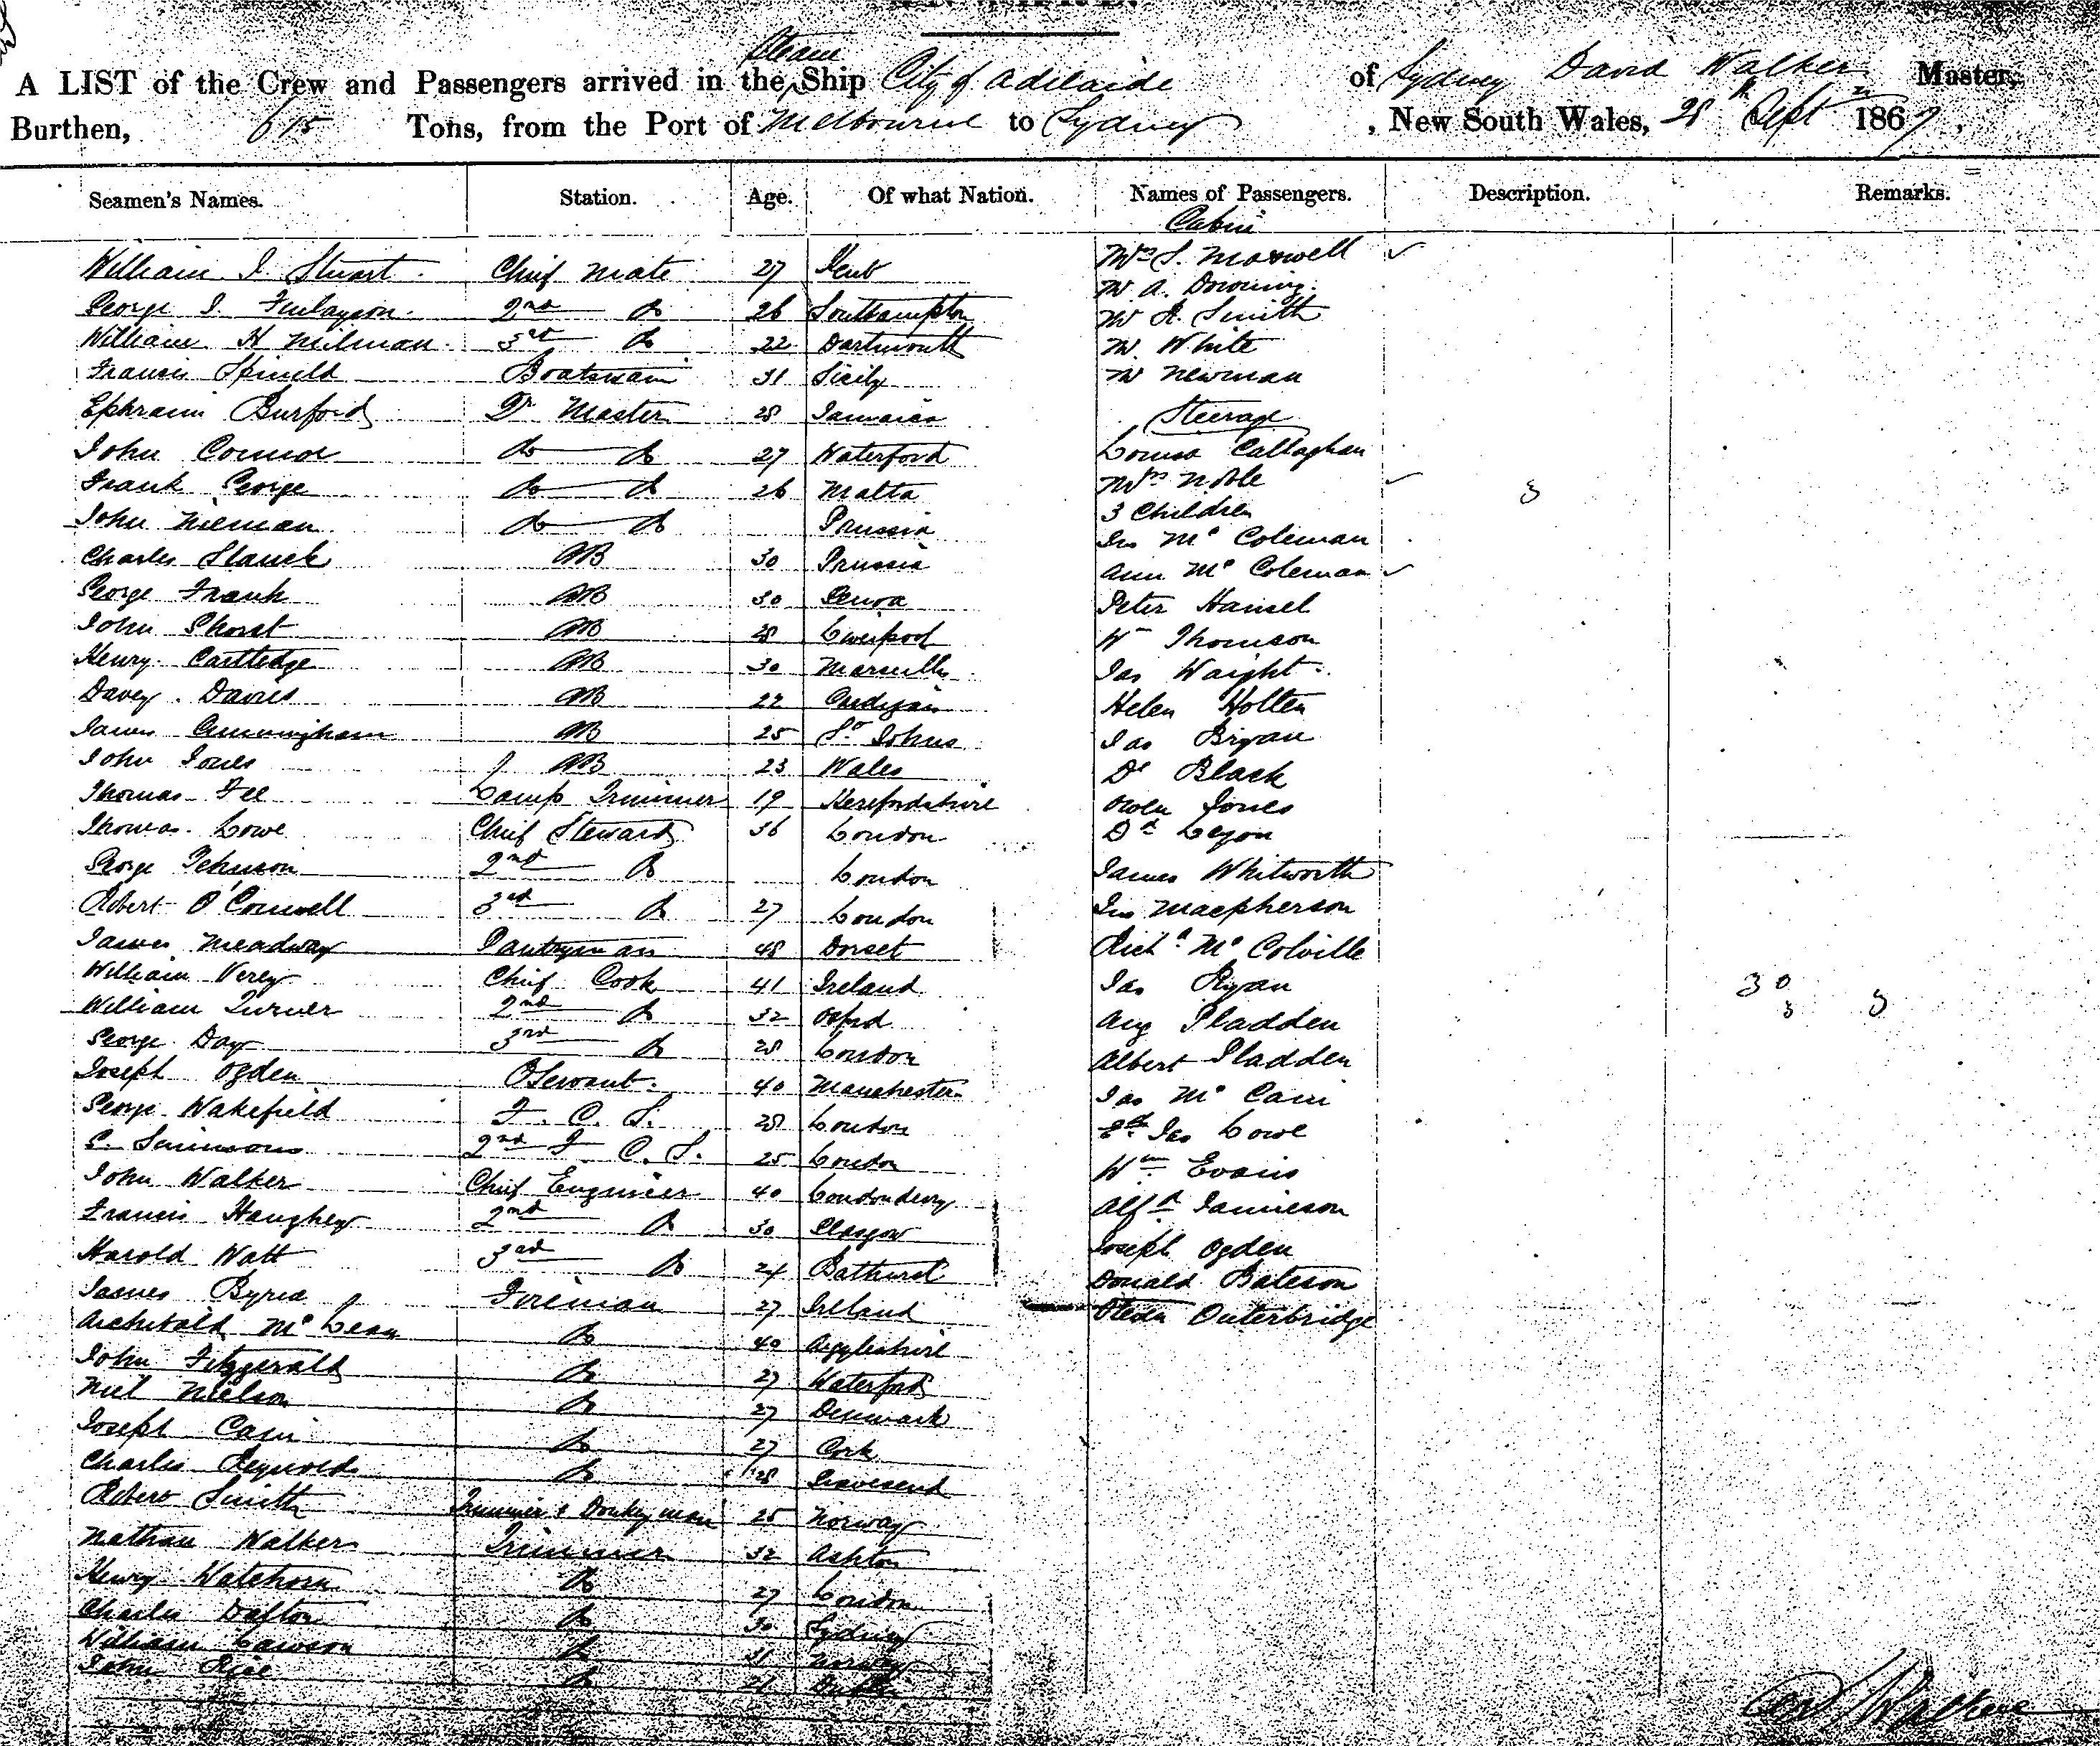 A LIST of the Crew and Passengers arrived in the Steam Ship City of Adelaide of Sydney David Walker Master,
Burthen, 615 Tons, from the Port of Melbourne to Sydney, New South Wales, 28th Sept 1867,
Seamen's Names. Station. Age. Of what Nation. Names of Passengers. Description. Remarks.
Cabin
William I. Stuart Chief Mate 27 Mrs S. Maxwell
George I. Finlayson 2nd Do 26 Southampton
William H Milman 3rd Do 22 Dartmouth
Francis Boatswain 31 Sicily
Ephraim Burford Qr Master 28 Jamaica
John Connor do do 27 Waterford
Frank George do do 26 Malta
John Nieman do do Prussia
Charles AB 30 Prussia
George Frank AB 30 Genoa
John AB 28 Liverpool
Henry Cartledge AB 30 Marseilles
Davey Davies AB 22 Cardigan
James Cunningham AB 25 St Johns
John Jones AB 23 Wales
Thomas Fee Lamp Trimmer 19 Herefordshire
Thomas Lowe Chief Steward 36 London
George 2nd Do London
Robert O'Connell 3rd Do 27 London
James Meadway Pantryman 48 Dorset
William Verey Chief Cook 41 Ireland
William Turner 2nd Do 32 Oxford
George Day 3rd Do 28 London
Joseph Ogden 40 Manchester
George Wakefield F. C. S. 28 London
C. Simmons 2nd F C. S. 25 London
John Walker Chief Engineer 40 Londonderry
Francis Haughey 2nd Do 30 Glasgow
Harold Watt 3rd Do 24 Bathurst
James Fireman 27 Ireland
Archibald Mc Lean Do 40 Argyleshire
John Fitzgerald Do 27 Waterford
Niel Nielson Do 27 Denmark
Joseph Cain Do 27 Cork
Charles Reynolds Do 28 Gravesend
Robert Smith Trimmer & Donkeyman 25 Norway
Nathan Walker Trimmer 32 Ashton
Henry Watehorn Do 27 London
Charles Dalton Do 30 Sydney
William Lawson Do 31 Norway
John Rice Do 21 Dublin
Mr A. Downing
Mr R. Smith
Mr White
Mr Newman
Steerage
Louisa Callaghan
Mrs Noble 3
3 Children
Jno Mc Coleman
Ann Mc Coleman
Peter Hansel
Wm Thomson
Jas Waight
Helen Holten
Jas Bryan
Dd Black
Owen Jones
Dd Legon
James Whitworth
Jno Macpherson
Richd Mc Colville
Jas Ryan 30 3
Aug Pladden 3
Albert Pladden
Jas Mc Cain
Jas Lowe
Wm Evans
Alfd Jamieson
Joseph Ogden
Donald Bateson
Outerbridge
Walker